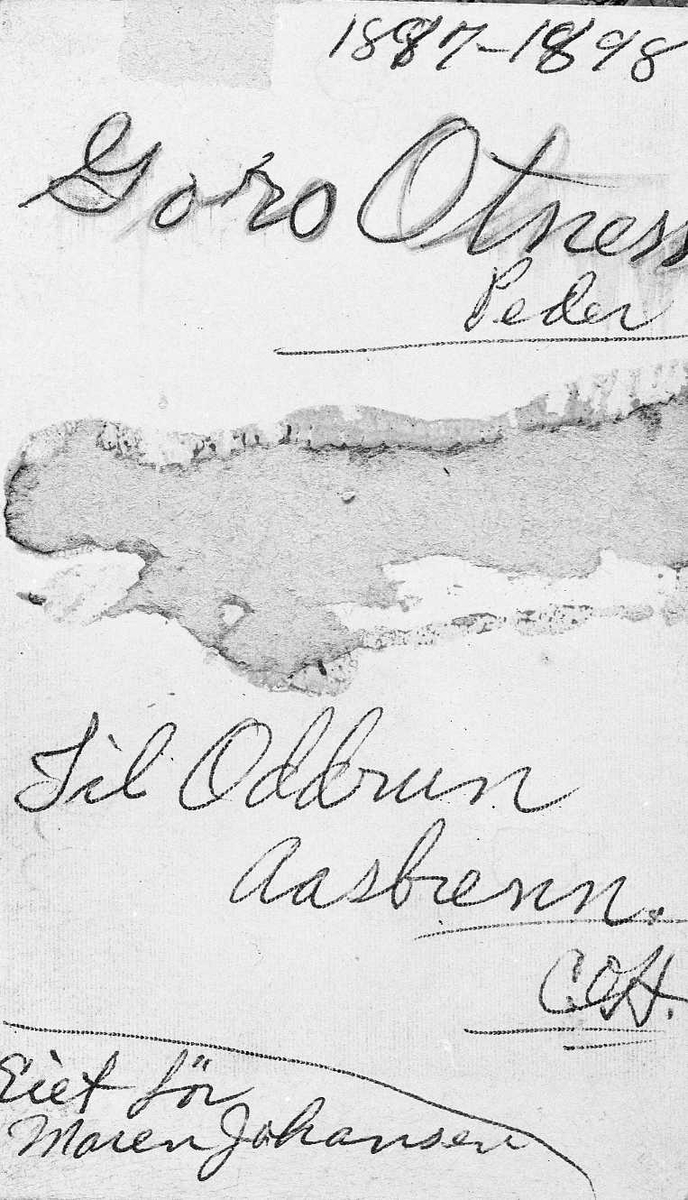 1887-1898
Goro Otness
Peder
Til Oddrun
Aasbrenn.
C.O.H.
Eiet för
Maren Johansen